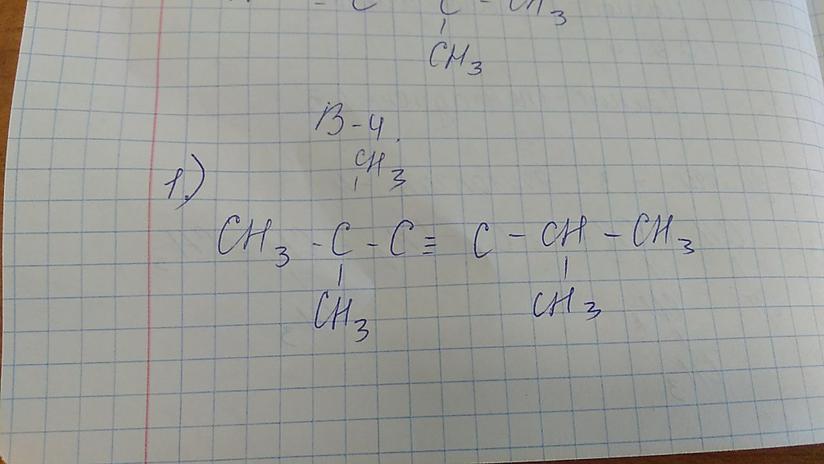 ≡ C C - CH3
CH3
В-4.
1.) CH3
CH3 - C - C ≡ C - CH - CH3
CH3 CH3